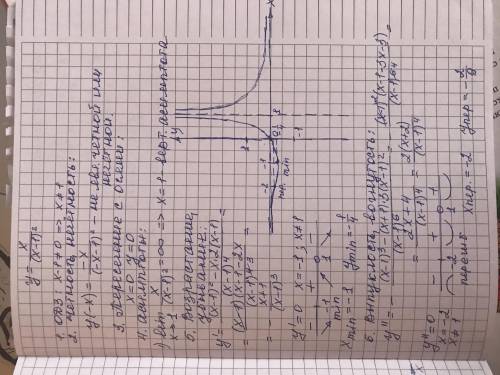 y = x/(x-1)²
1. ОДЗ: x-1≠0 => x≠1
2. Четность, нечетность:
y(-x) = -x/(-x-1)² - не явл. четной или нечетной.
3. Пересечение с осями:
x=0 y=0
4. Асимптоты:
1) lim x→1 x/(x-1)² = ∞ => x=1 - верт. асимптота
5. Возрастание, убывание:
y' = ((x-1)²-x·2(x-1))/(x-1)⁴ =
= (x-1)(x-1-2x)/(x-1)⁴ =
= - (x+1)/(x-1)³
y'=0 x=-1; x≠1
- + -
-1 1
min
x min = -1 y min = -1/4
6. Выпуклость, вогнутость:
y'' = - ((x-1)³-(x+1)3(x-1)²)/(x-1)⁶ = - (x-1)²(x-1-3x-3)/(x-1)⁶ =
= (2x+4)/(x-1)⁴ = 2(x+2)/(x-1)⁴
y''=0
x=-2
x≠1
- + +
-2 1
перегиб
x пер. = -2 y пер = -2/9
y
x
-2 -1 0 1
пер. min
-1